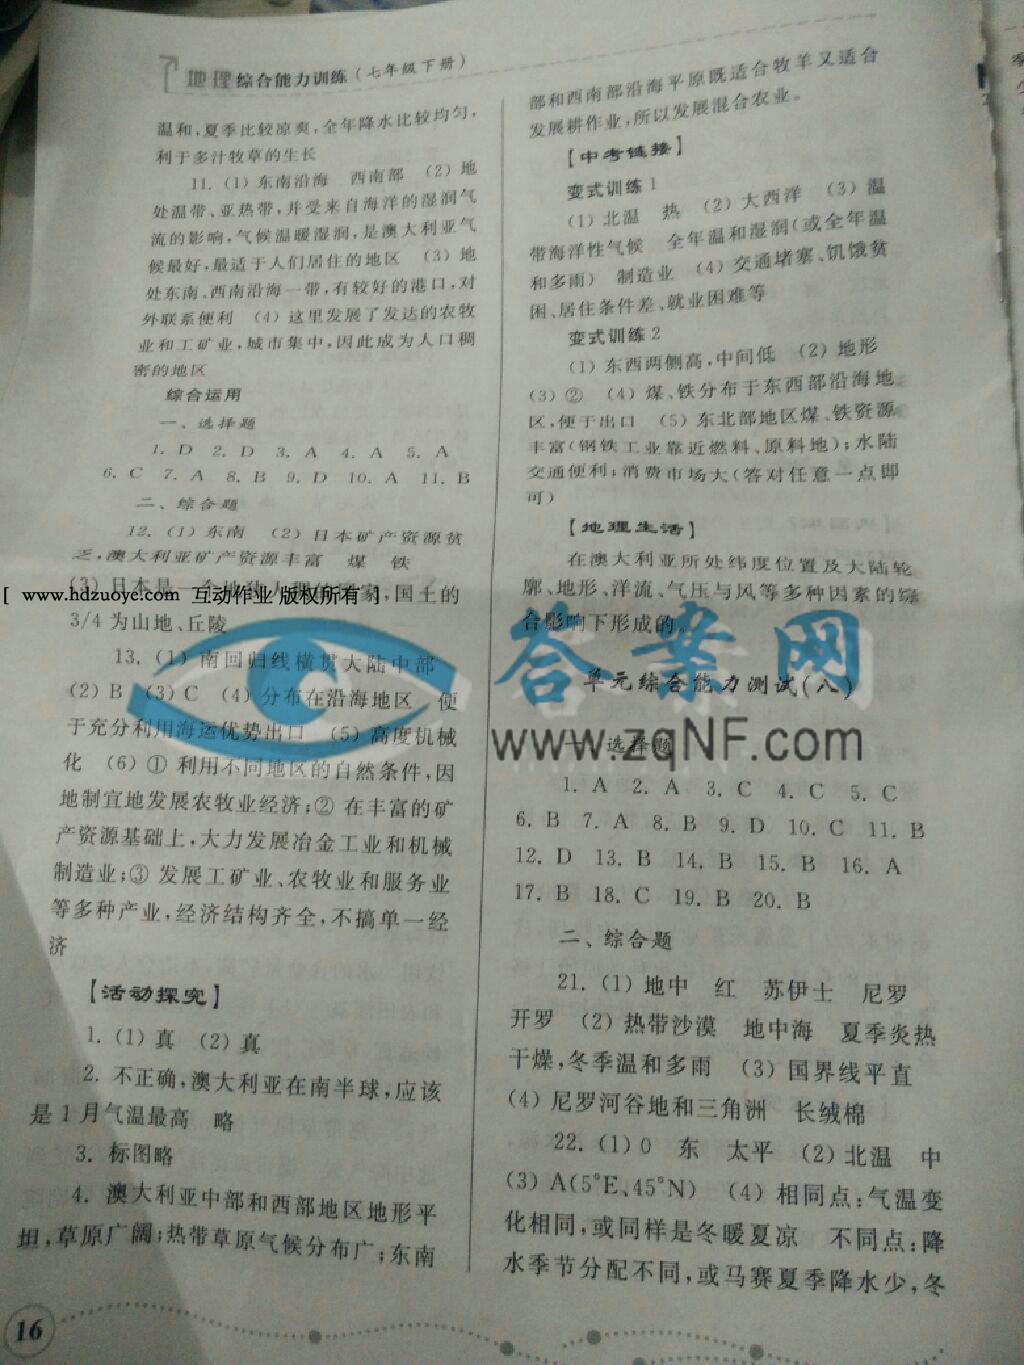 地理综合能力训练(七年级下册)
温和,夏季比较凉爽,全年降水比较均匀,
利于多汁牧草的生长
11. (1) 东南沿海 西南部 (2) 地
处温带、亚热带,并受来自海洋的湿润气
流的影响,气候温暖湿润,是澳大利亚气
候最好,最适于人们居住的地区 (3) 地
处东南、西南沿海一带,有较好的港口,对
外联系便利 (4) 这里发展了发达的农牧
业和工矿业,城市集中,因此成为人口稠
密的地区
综合运用
一、选择题
1. D 2. D 3. A 4. A 5. A
6. C 7. A 8. B 9. D 10. A 11. B
二、综合题
12. (1) 东南 (2) 日本矿产资源贫
乏,澳大利亚矿产资源丰富 煤 铁
(3) 日本是 国土的
[ www.hdzuoye.com 互动作业 版权所有 ]
3/4 为山地、丘陵
13. (1) 南回归线横贯大陆中部
(2) B (3) C (4) 分布在沿海地区 便
于充分利用海运优势出口 (5) 高度机械
化 (6) ① 利用不同地区的自然条件,因
地制宜地发展农牧业经济;② 在丰富的矿
产资源基础上,大力发展冶金工业和机械
制造业;③ 发展工矿业、农牧业和服务业
等多种产业,经济结构齐全,不搞单一经
济
【活动探究】
1. (1) 真 (2) 真
2. 不正确,澳大利亚在南半球,应该
是 1 月气温最高 略
3. 标图略
4. 澳大利亚中部和西部地区地形平
坦,草原广阔;热带草原气候分布广;东南
16
部和西南部沿海平原既适合牧羊又适合
发展耕作业,所以发展混合农业。
【中考链接】
变式训练 1
(1) 北温 热 (2) 大西洋 (3) 温
带海洋性气候 全年温和湿润(或全年温
和多雨) 制造业 (4) 交通堵塞、饥饿贫
困、居住条件差、就业困难等
变式训练 2
(1) 东西两侧高,中间低 (2) 地形
(3) ② (4) 煤、铁分布于东西部沿海地
区,便于出口 (5) 东北部地区煤、铁资源
丰富(钢铁工业靠近燃料、原料地);水陆
交通便利;消费市场大(答对任意一点即
可)
【地理生活】
在澳大利亚所处纬度位置及大陆轮
廓、地形、洋流、气压与风等多种因素的综
合影响下形成的。
答案网
www.zqNF.com
单元综合能力测试(八)
一、选择题
1. A 2. A 3. C 4. C 5. C
6. B 7. A 8. B 9. D 10. C 11. B
12. D 13. B 14. B 15. B 16. A
17. B 18. C 19. B 20. B
二、综合题
21. (1) 地中 红 苏伊士 尼罗
开罗 (2) 热带沙漠 地中海 夏季炎热
干燥,冬季温和多雨 (3) 国界线平直
(4) 尼罗河谷地和三角洲 长绒棉
22. (1) 0 东 太平 (2) 北温 中
(3) A(5°E、45°N) (4) 相同点:气温变
化相同,或同样是冬暖夏凉 不同点:降
水季节分配不同,或马赛夏季降水少,冬